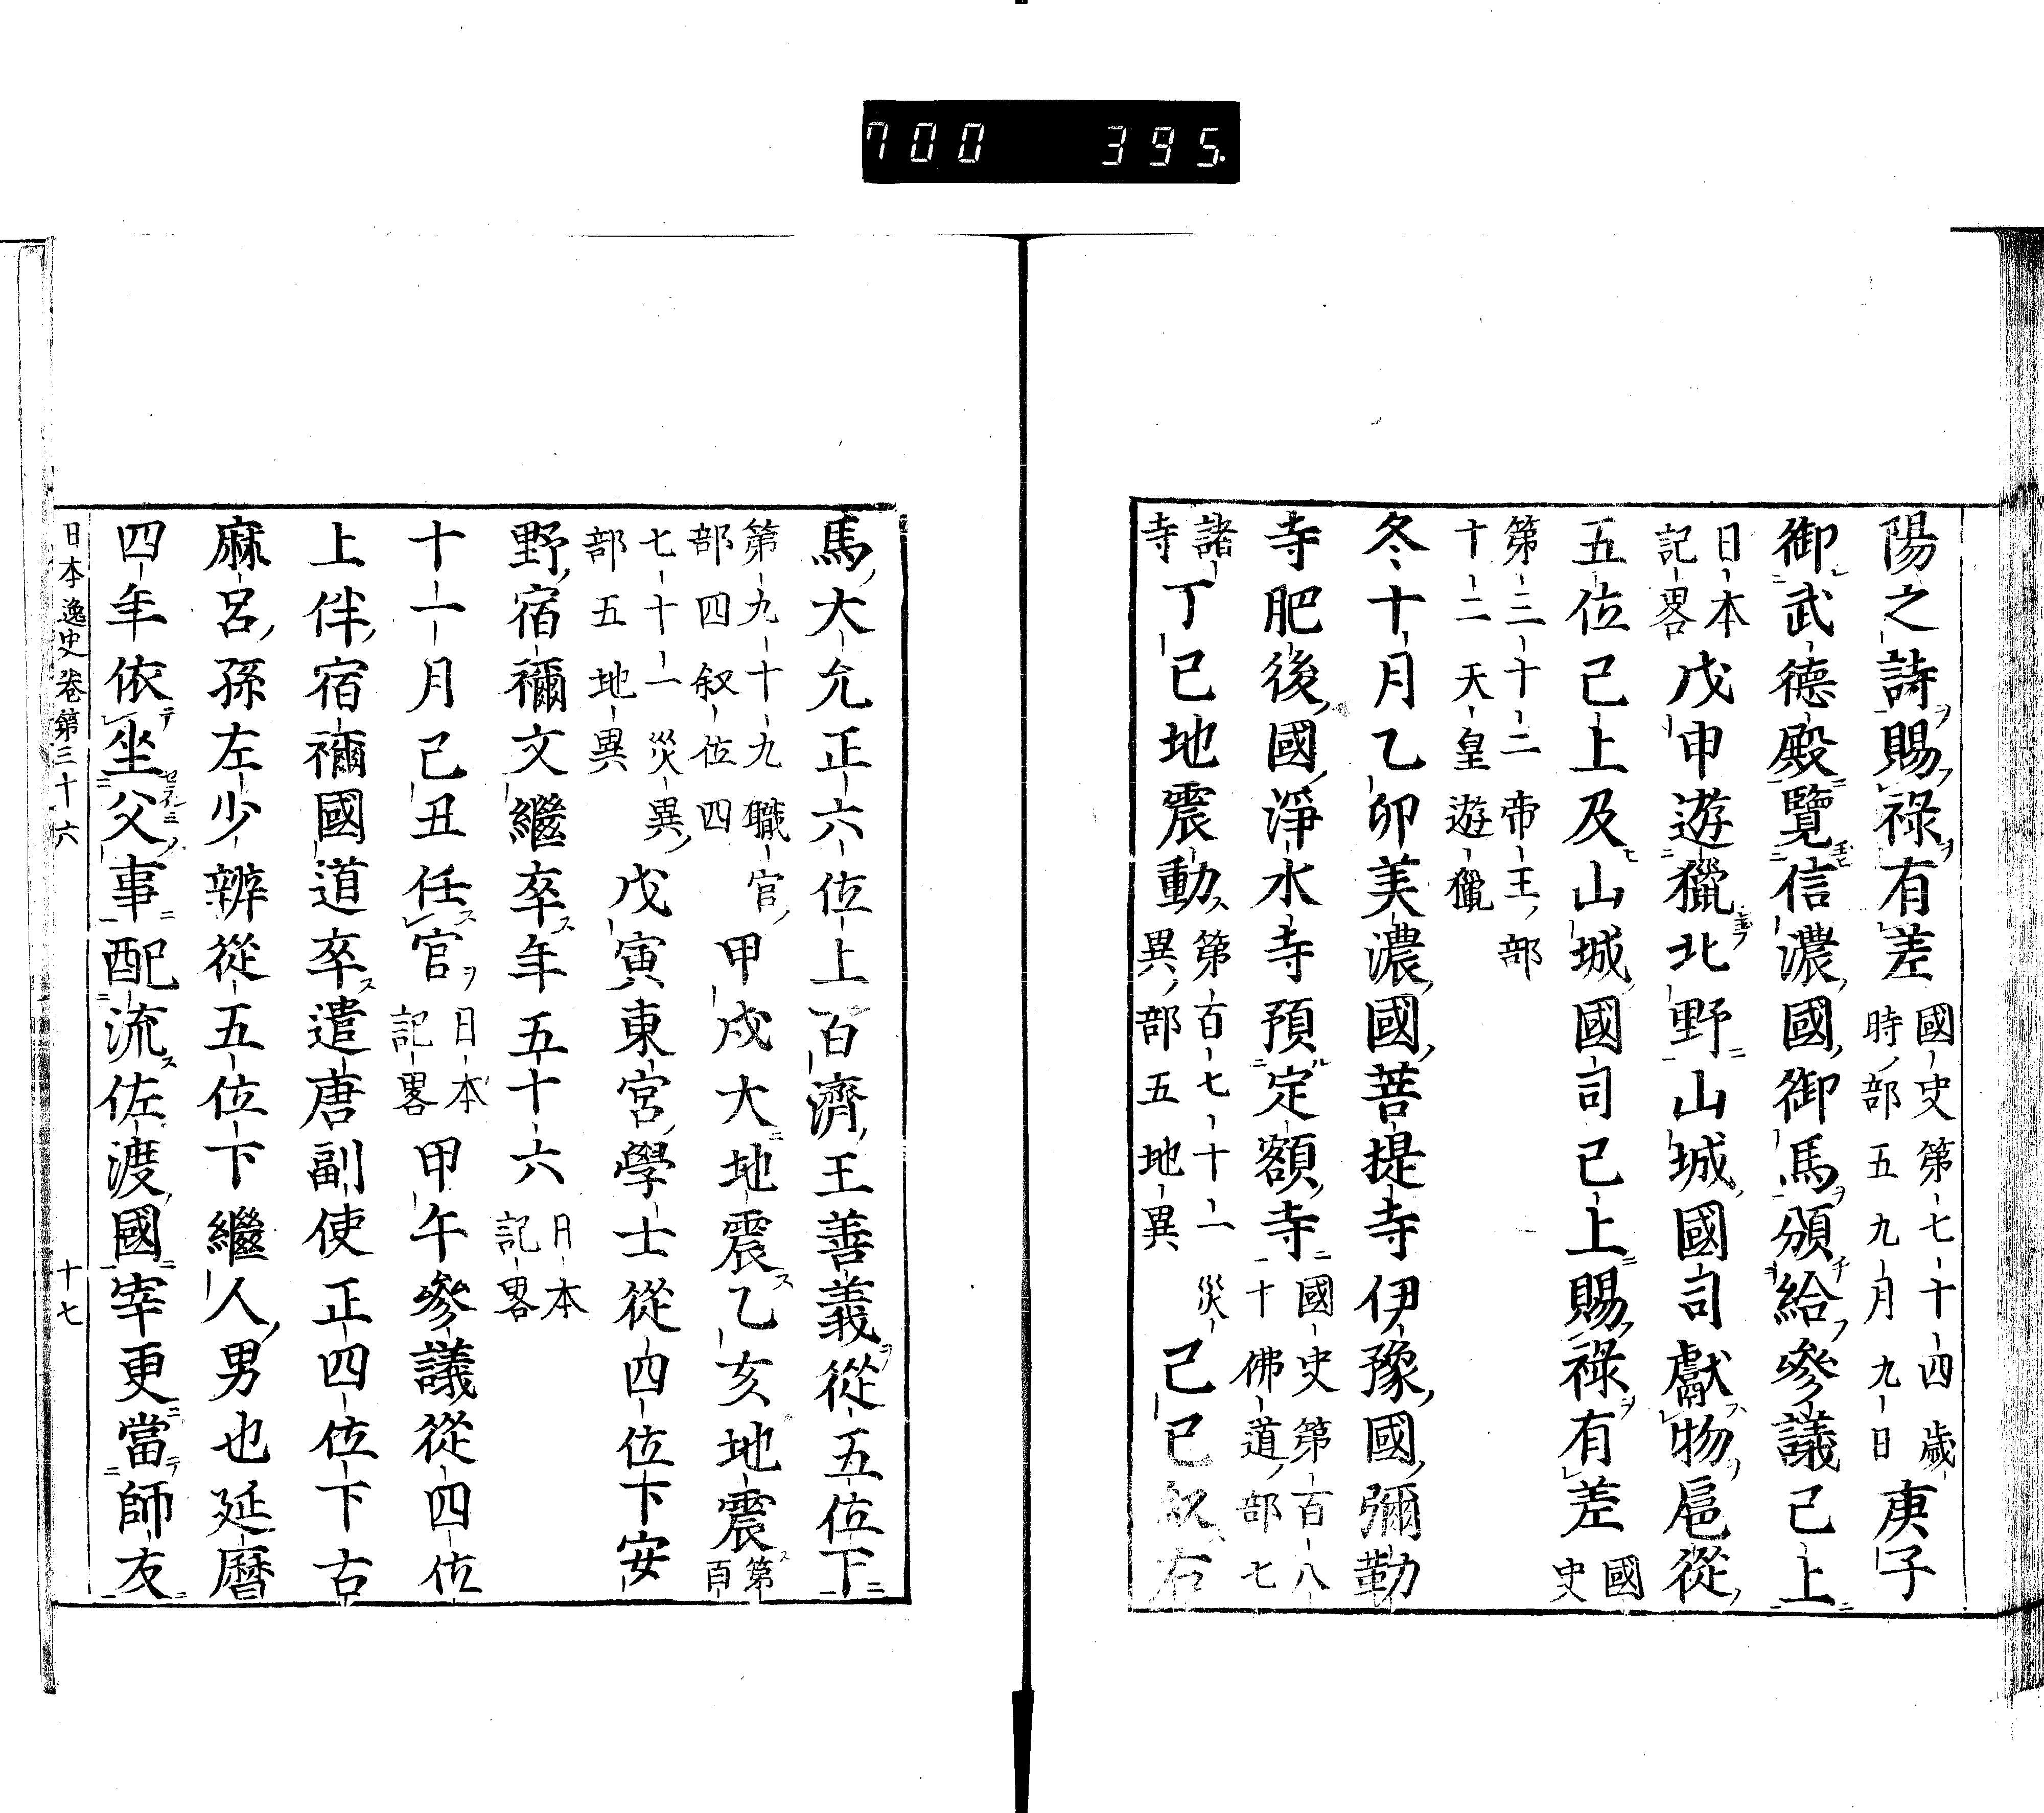 700 395
陽之詩賜祿有差國史第七十四歳時部五九月九日庚子
御武德殿覽信濃國御馬頒給參議已上
日本記畧戊申遊獵北野山城國司獻物扈從
五位已上及山城國司已上賜祿有差國史
第三十二帝王部十二天皇遊獵
冬十月乙卯美濃國菩提寺伊豫國彌勒
寺肥後國淨水寺預定額寺國史第百八十佛道部七
諸寺丁巳地震動第百七十一災異部五地異己巳叙右
馬大允正六位上百濟王善義從五位下
第九十九職官部四叙位四甲戌大地震乙亥地震第百
七十一災異部五地異戊寅東宮學士從四位下安
野宿禰文繼卒年五十六日本記畧
十一月己丑任官日本記畧甲午參議從四位
上伴宿禰國道卒遣唐副使正四位下古
麻呂孫左少辨從五位下繼人男也延曆
四年依坐父事配流佐渡國宰更當師友
日本逸史卷第三十六 十七